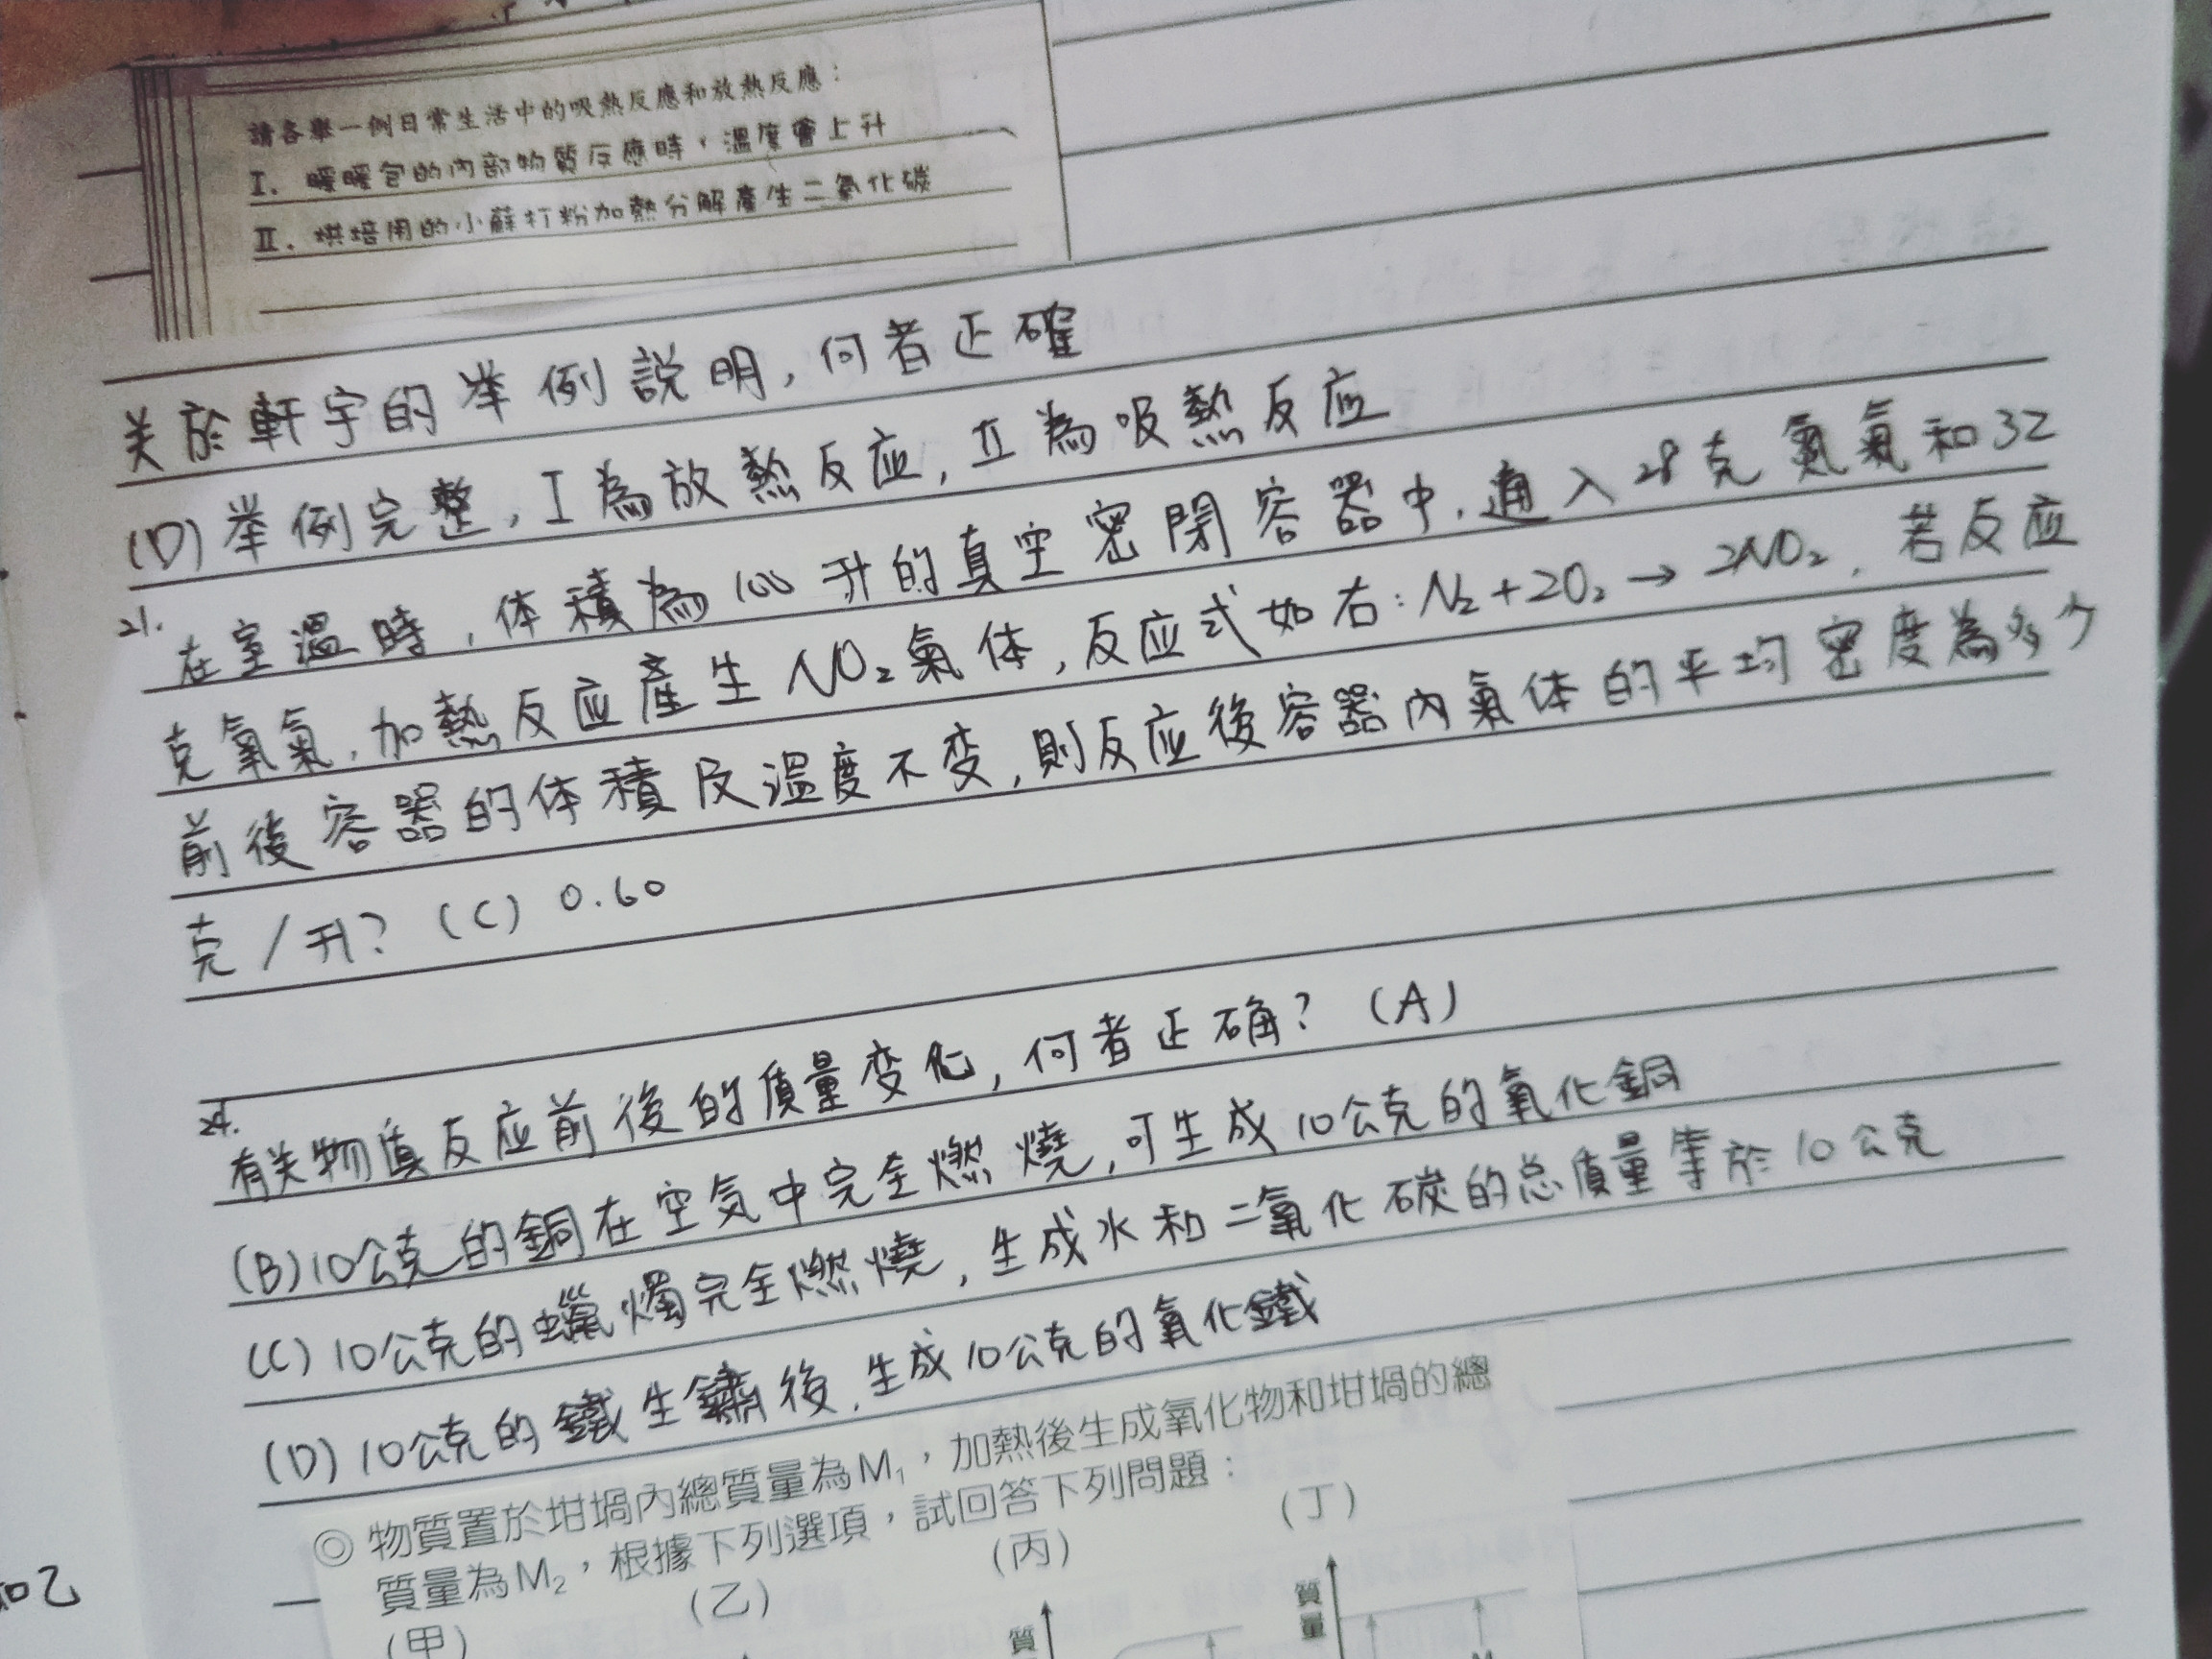 請各舉一例日常生活中的吸熱反應和放熱反應：
I. 暖暖包的內部物質反應時，溫度會上升
II. 烘培用的小蘇打粉加熱分解產生二氧化碳
关於軒宇的举例説明，何者正確
(D) 举例完整，I為放熱反应，II為吸熱反应
21. 在室温時，体積為100升的真空密閉容器中，通入28克氮氣和32
克氧氣，加熱反应產生NO₂氣体，反应式如右：N₂+2O₂→2NO₂，若反应
前後容器的体積及温度不变，則反应後容器內氣体的平均密度為多少
克/升？(C) 0.60
24. 有关物質反应前後的質量变化，何者正确？(A)
(B) 10公克的銅在空気中完全燃燒，可生成10公克的氧化銅
(C) 10公克的蠟燭完全燃燒，生成水和二氧化碳的总質量等於10公克
(D) 10公克的鐵生鏽後，生成10公克的氧化鐵
◎ 物質置於坩堝內總質量為M₁，加熱後生成氧化物和坩堝的總
質量為M₂，根據下列選項，試回答下列問題：
(甲) (乙) (丙) (丁)
質 質量
和乙